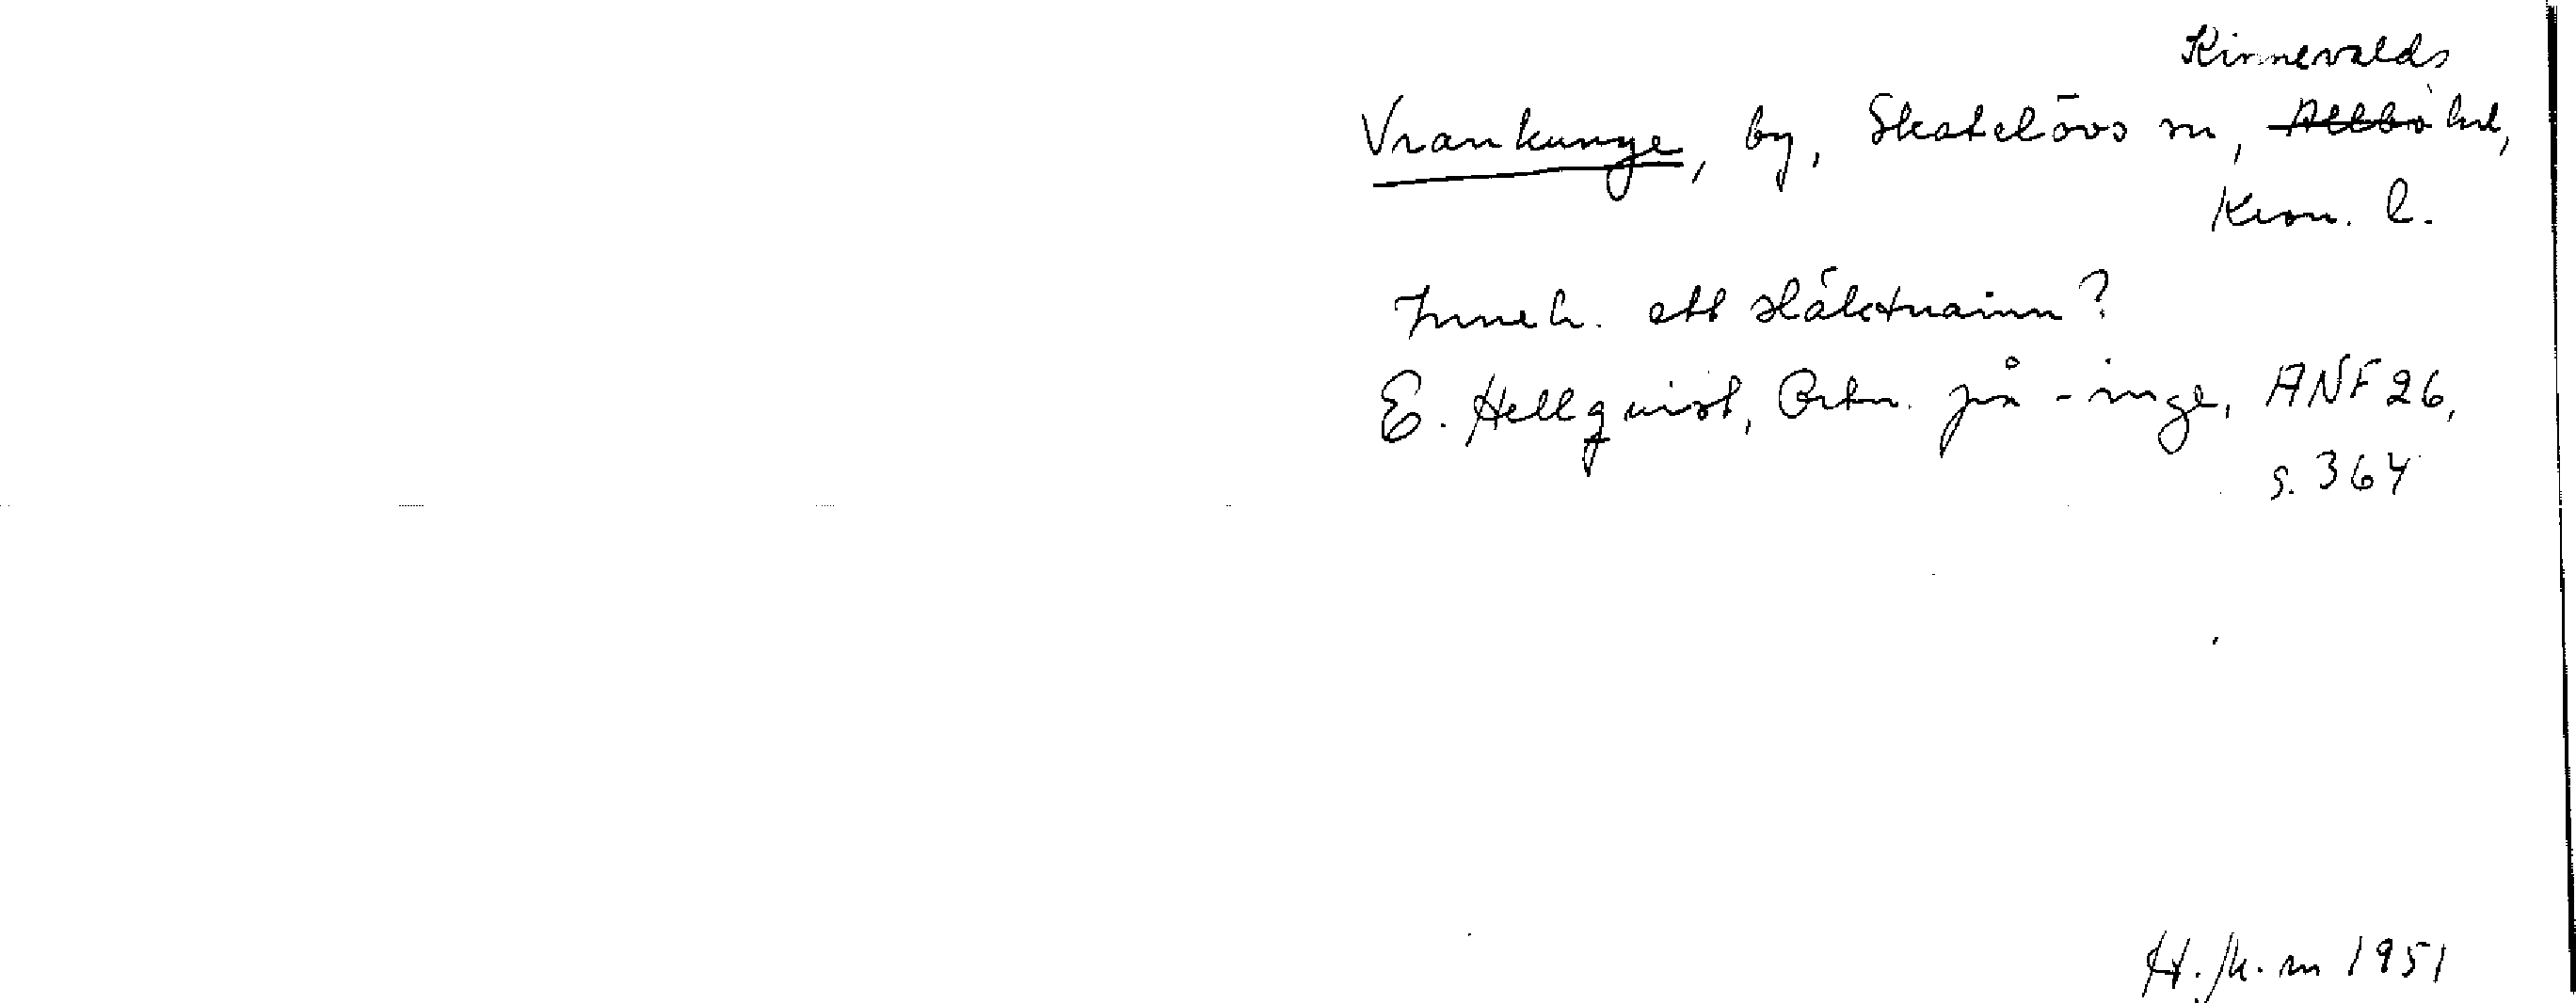 Kinnevalds
Vrankunge, by, Skatelövs sn, Allbo hd,
Kron. l.
Inneh. ett släktnamn?
E. Hellquist, Ortn. på -inge, ANF 26,
s. 364
1951